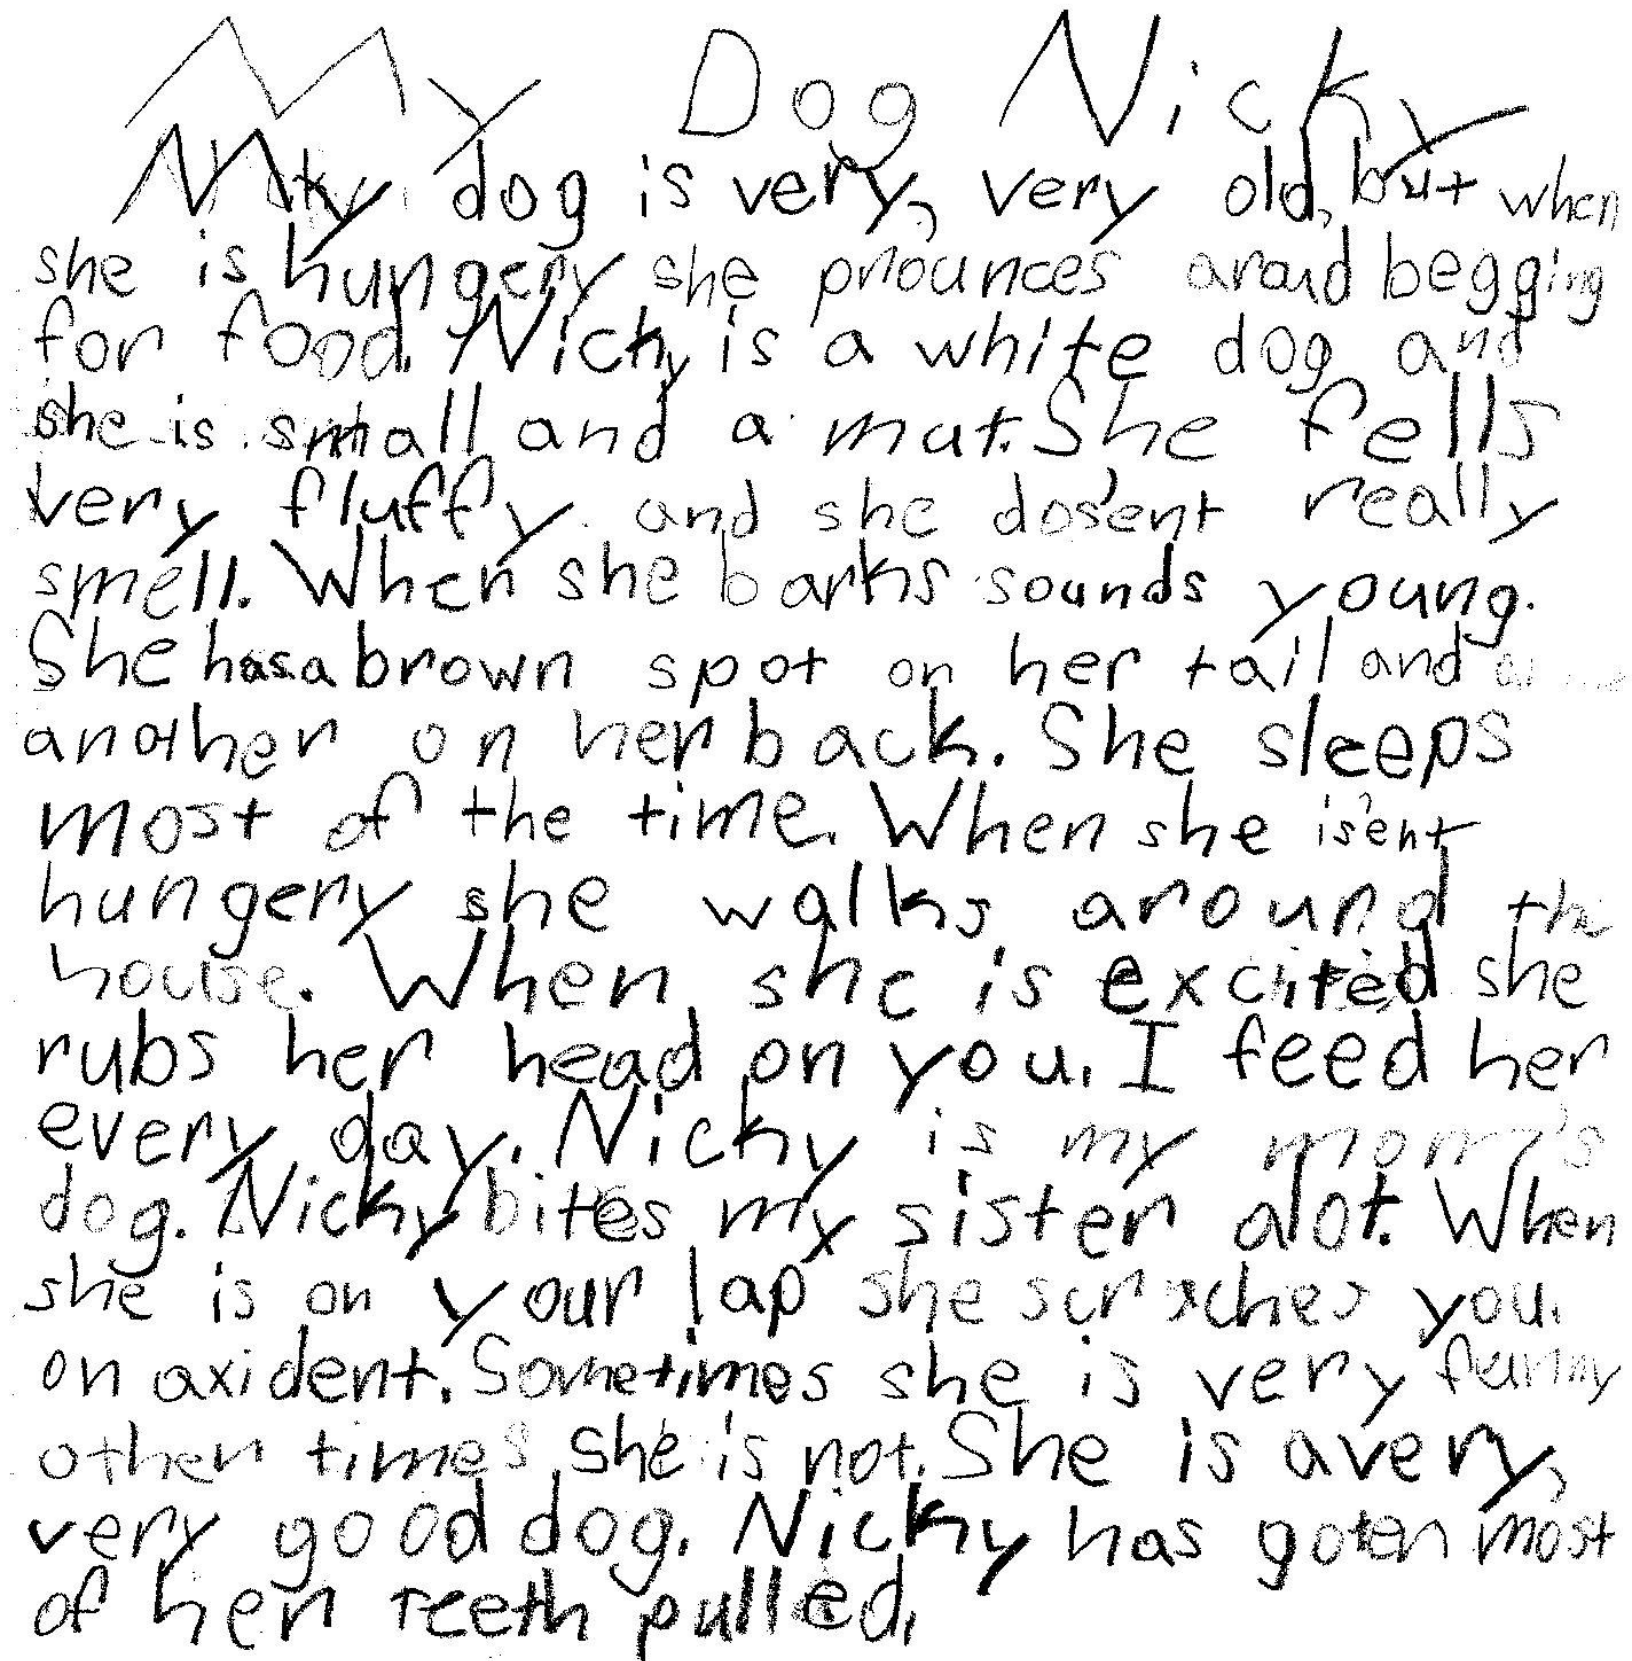 My Dog Nicky
My dog is very, very old, but when
she is hungery she pnounces aroud begging
for food. Nicky is a white dog and
she is small and a mut. She fells
very fluffy and she dos'ent really
smell. When she barks sounds young.
She has a brown spot on her tail and
another on her back. She sleeps
most of the time. When she is'ent
hungery she walks around the
house. When she is excited she
rubs her head on you. I feed her
every day. Nicky is my mom's
dog. Nicky bites my sister alot. When
she is on your lap she you.
on axident. Sometimes she is very funny
other times she is not. She is a very,
very good dog. Nicky has goten most
of her teeth pulled.